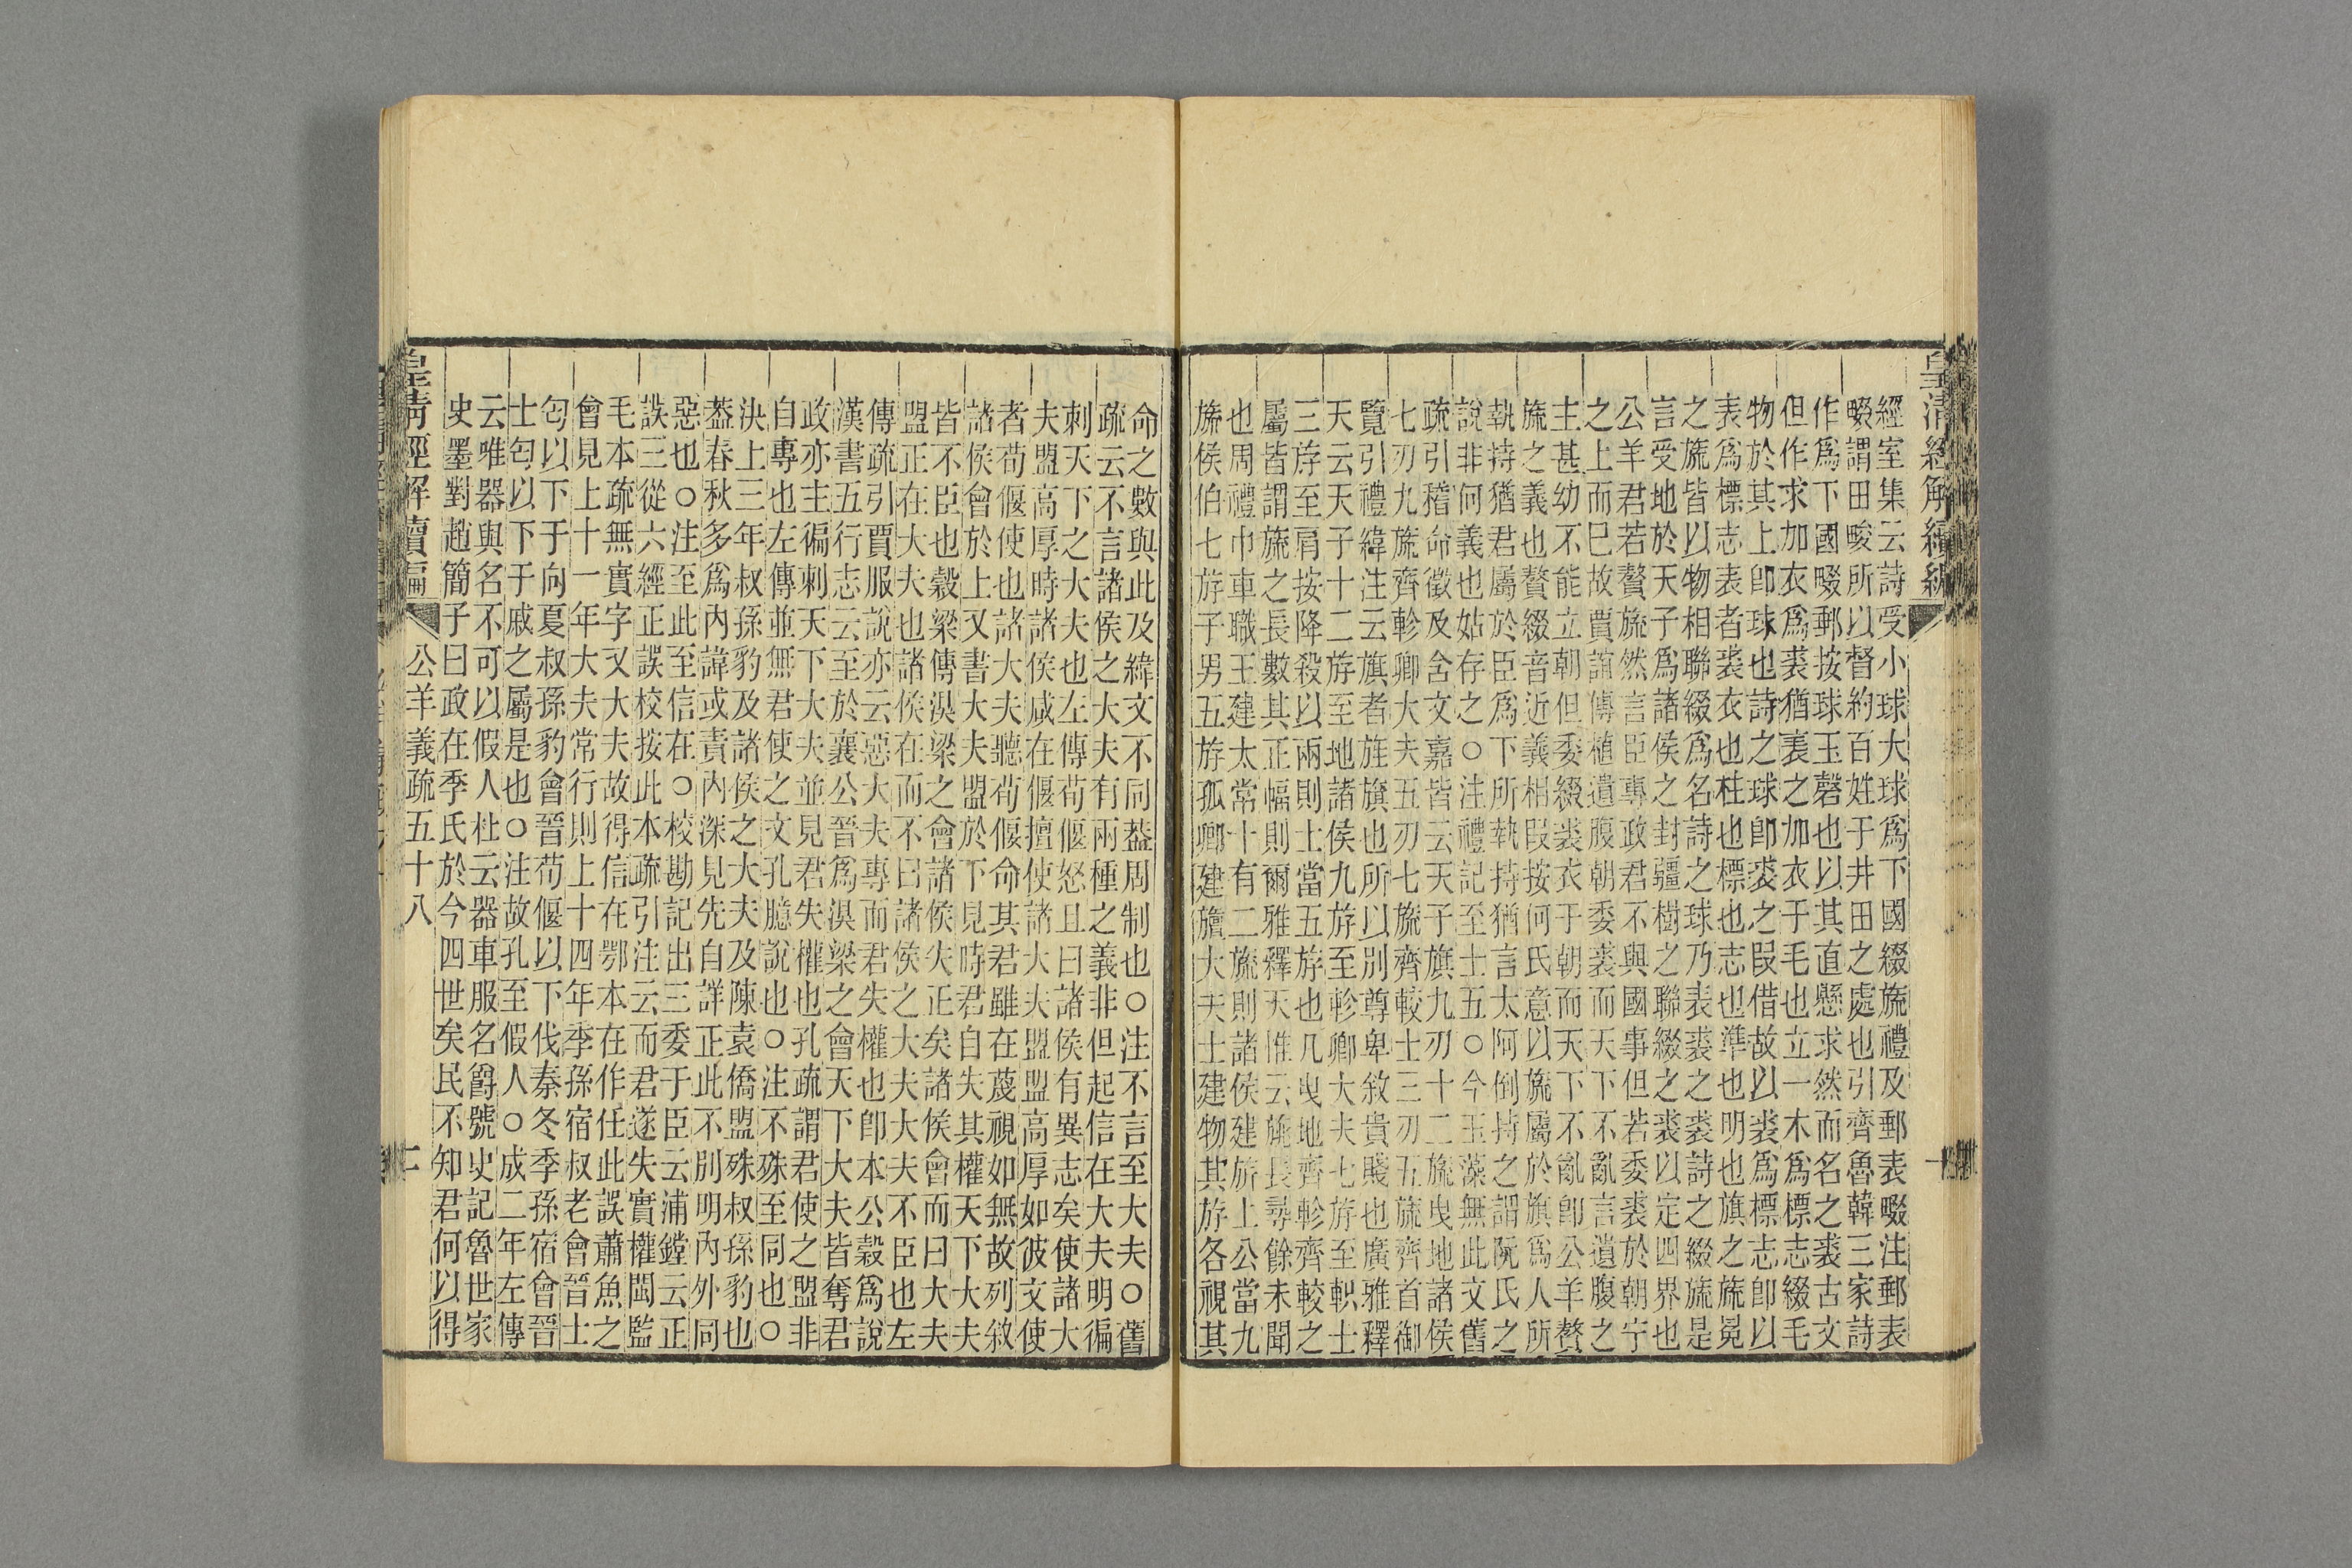 皇清經解續編
一
經室集云詩受小球大球爲下國綴旒禮及郵表畷注郵表
畷謂田畯所以督約百姓于井田之處也引齊魯韓三家詩
作爲下國畷郵按球玉磬也以其直懸求然而名之裘古文
但作求加衣爲裘猶表之加衣于毛也立一木爲標志綴毛
物於其上卽球也詩之球卽裘之叚借故以裘爲標志卽以
表爲標志表者裘衣也杜也標也志也準也明也旗之旒冕
之旒皆以物相聯綴爲名詩之球乃表裘之裘詩之綴旒是
言受地於天子爲諸侯之封疆樹之聯綴之裘以定四界也
公羊君若贅旒然言臣專政君不與國事但若委裘於朝宁
之上而巳故賈誼傳植遺腹朝委裘而天下不亂言遺腹之
主甚幼不能立朝但委綴裘衣于朝而天下不亂卽公羊贅
旒之義也贅綴音近義相叚按何氏意以旒屬於旗爲人所
執持猶君屬於臣爲下所執持猶言太阿倒持之謂阮氏之
說非何義也姑存之○注禮記至士五○今玉藻無此文舊
疏引稽命徵及含文嘉皆云天子旗九刃十二旒曳地諸侯
七刃九旒齊軫卿大夫五刃七旒齊較士三刃五旒齊首御
覽引禮緯注云旗者旌旗也所以別尊卑敘貴賤也廣雅釋
天云天子十二斿至地諸侯九斿至軫卿大夫七斿至軹士
三斿至肩按降殺以兩則士當五斿也几曳地齊軫齊較之
屬皆謂旒之長數其正幅則爾雅釋天惟云旐長尋餘未聞
也周禮巾車職王建太常十有二旒則諸侯建旂上公當九
旒侯伯七斿子男五斿孤卿建旜大夫士建物其斿各視其
命之數與此及緯文不同葢周制也○注不言至大夫○舊
疏云不言諸侯之大夫有兩種之義非但起信在大夫明徧
刺天下之大夫也左傳荀偃怒且曰諸侯有異志矣使諸大
夫盟高厚時諸侯咸在偃擅使諸大夫盟盟高厚如彼文使
者荀偃使也諸大夫聽荀偃命其君雖在蔑視如無故列敘
諸侯會於上又書大夫盟於下見時君自失其權天下大夫
皆不臣也穀梁傳湨梁之會諸侯失正矣諸侯會而曰大夫
盟正在大夫也諸侯在而不曰諸侯之大夫大夫不臣也左
傳疏引賈服說亦云惡大夫專而君失權也卽本公穀爲說
漢書五行志云至於襄公晉爲湨梁之會天下大夫皆奪君
政亦主徧刺天下大夫並見君失權也孔疏謂君使之盟非
自專也左傳並無君使之文孔臆說也○注不殊至同也○
決上三年叔孫豹及諸侯之大夫及陳袁僑盟殊叔孫豹也
葢春秋多爲內諱或責內深見先自詳正此不別明內外同
惡也○注至此至信在○校勘記出三委于臣云浦鏜云正
誤三從六經正誤校按此本疏引注云而君遂失實權閩監
毛本疏無實字又大夫故得信在鄂本在作任此誤蕭魚之
會見上十一年大夫常行則上十四年季孫宿叔老會晉士
匄以下于向夏叔孫豹會晉荀偃以下伐秦冬季孫宿會晉
士匄以下于戚之屬是也○注故孔至假人○成二年左傳
云唯器與名不可以假人杜云器車服名爵號史記魯世家
史墨對趙簡子曰政在季氏於今四世矣民不知君何以得
皇清經解續編 公羊義疏五十八 二